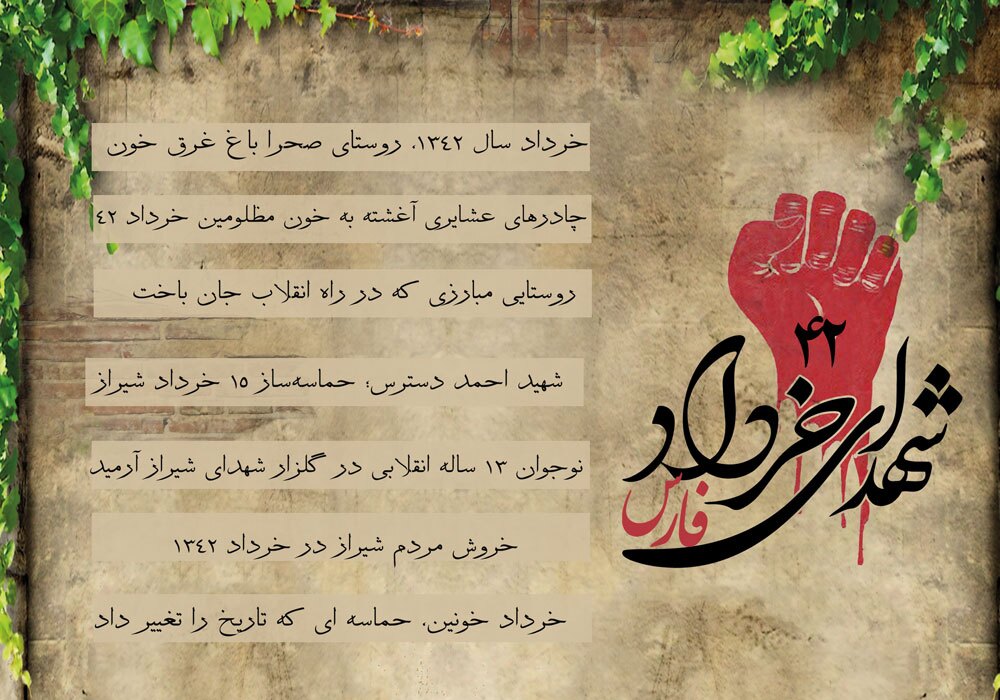 خرداد سال ۱۳۴۲، روستای صحرا باغ غرق خون
چادرهای عشایری آغشته به خون مظلومین خرداد ۴۲
روستایی مبارزی که در راه انقلاب جان باخت
شهید احمد دسترس؛ حماسه‌ساز ۱۵ خرداد شیراز
نوجوان ۱۳ ساله انقلابی در گلزار شهدای شیراز آرمید
خروش مردم شیراز در خرداد ۱۳۴۲
خرداد خونین، حماسه ای که تاریخ را تغییر داد
شهدای خرداد ۴۲
فارس